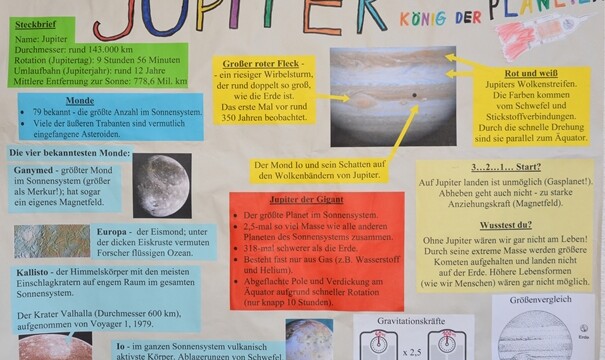 JUPITER
KÖNIG DER PLANETEN
Steckbrief
Name: Jupiter
Durchmesser: rund 143.000 km
Rotation (Jupitertag): 9 Stunden 56 Minuten
Umlaufbahn (Jupiterjahr): rund 12 Jahre
Mittlere Entfernung zur Sonne: 778,6 Mil. km
Monde
• 79 bekannt - die größte Anzahl im Sonnensystem.
• Viele der äußeren Trabanten sind vermutlich
eingefangene Asteroiden.
Die vier bekanntesten Monde:
Ganymed - größter Mond
im Sonnensystem (größer
als Merkur!); hat sogar
ein eigenes Magnetfeld.
Europa - der Eismond; unter
der dicken Eiskruste vermuten
Forscher flüssigen Ozean.
Kallisto - der Himmelskörper mit den meisten
Einschlagkratern auf engem Raum im gesamten
Sonnensystem.
Der Krater Valhalla (Durchmesser 600 km),
aufgenommen von Voyager 1, 1979.
Io - im ganzen Sonnensystem vulkanisch
aktivste Körper. Ablagerungen von Schwefel
Großer roter Fleck -
- ein riesiger Wirbelsturm,
der rund doppelt so groß,
wie die Erde ist.
Das erste Mal vor rund
350 Jahren beobachtet.
Der Mond Io und sein Schatten auf
den Wolkenbändern von Jupiter.
Jupiter der Gigant
• Der größte Planet im Sonnensystem.
• 2,5-mal so viel Masse wie alle anderen
Planeten des Sonnensystems zusammen.
• 318-mal schwerer als die Erde.
• Besteht fast nur aus Gas (z.B. Wasserstoff
und Helium).
• Abgeflachte Pole und Verdickung am
Äquator aufgrund schneller Rotation
(nur knapp 10 Stunden).
Gravitationskräfte
x 2,5
Rot und weiß
Jupiters Wolkenstreifen.
Die Farben kommen
vom Schwefel und
Stickstoffverbindungen.
Durch die schnelle Drehung
sind sie parallel zum Äquator.
3...2...1... Start?
Auf Jupiter landen ist unmöglich (Gasplanet!).
Abheben geht auch nicht - zu starke
Anziehungskraft (Magnetfeld).
Wusstest du?
Ohne Jupiter wären wir gar nicht am Leben!
Durch seine extreme Masse werden größere
Kometen aufgehalten und landen nicht
auf der Erde. Höhere Lebensformen
(wie wir Menschen) wären gar nicht möglich.
Größenvergleich
Erde